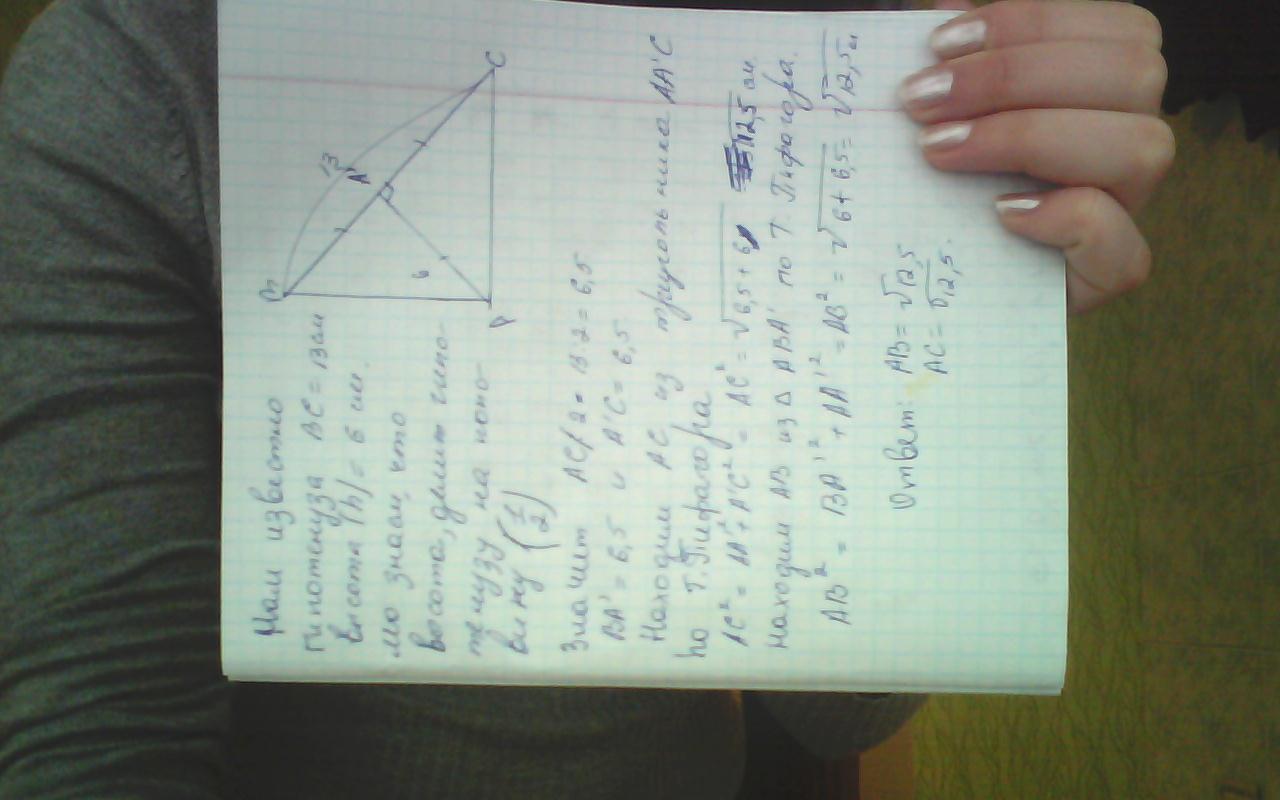 Нам известно
гипотенуза BC = 13 см
высота (h) = 6 см.
мо знаем, что
высота, делит гипо-
тенузу на поло-
вину (1/2)
B
13
A'
C
6
A
Значит AC/2 = 13:2 = 6,5
BA' = 6,5 и A'C = 6,5
Находим AC из треугольника AA'C
по Т. Пифагора
AC² = AA'² + A'C² = AC² = √6,5+6 √12,5 см
Находим AB из △ ABA' по Т. Пифагора.
AB² = BA'² + AA'² = AB² = √6+6,5 = √12,5 см
Ответ: AB = √12,5
AC = √12,5.